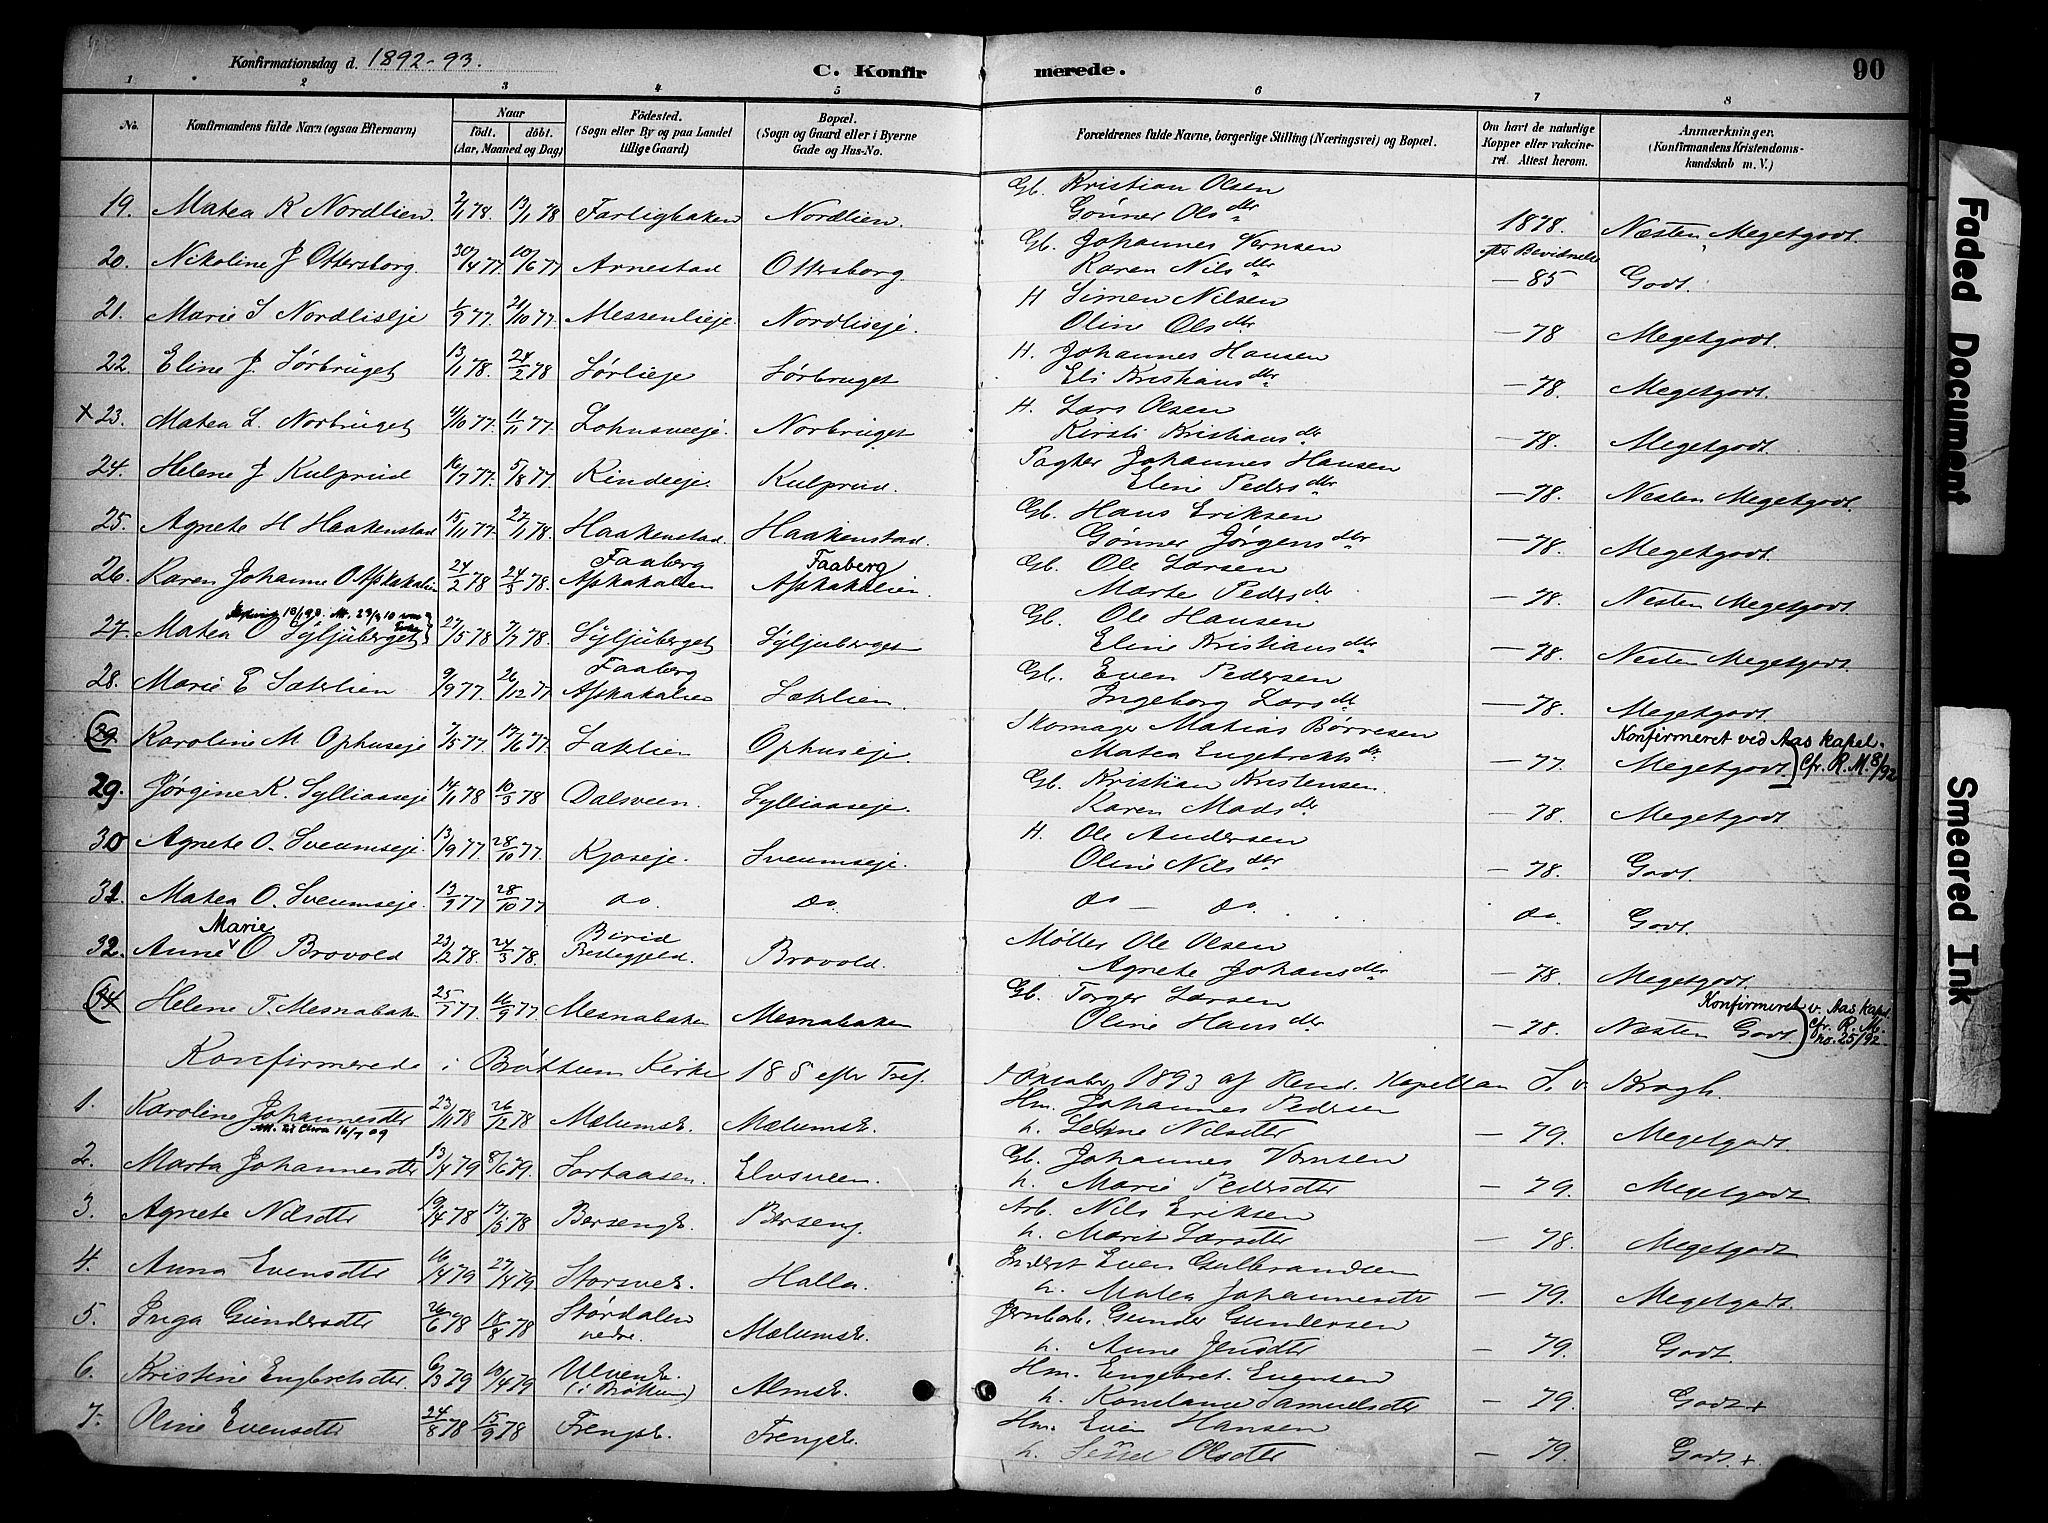 Konfirmationsdag d. 1892-93.
C. Konfirmerede.
90
1 2 3 4 5 6 7 8
No.
Konfirmandens fulde Navn (ogsaa Efternavn)
Naar
født. døbt.
(Aar, Maaned og Dag)
Fødested.
(Sogn eller By og paa Landet
tillige Gaard)
Bopæl.
(Sogn og Gaard eller i Byerne
Gade og Hus-No.
Forældrenes fulde Navne, borgerlige Stilling (Næringsvei) og Bopæl.
Om havt de naturlige
Kopper eller vakcine-
ret. Attest herom.
Anmærkninger.
(Konfirmandens Kristendoms-
kundskab m. V.)
19. Matea K Nordlien. 2/1 78. 13/1 78 Farligbaken Nordlien. Gb. Kristian Olsen
Gønner Olsdtr 1878. Næsten Megetgodt.
20. Nikoline J Ottersborg. 30/4 77. 10/6 77 Arnestad Ottersborg Gb. Johannes Vernsen
Karen Nilsdtr efter Bevidnelse – 85 Godt.
21. Marie S Nordliseje 1/9 77. 21/10 77. Messenlieje. Nordliseje. H Simen Nilsen
Oline Olsdtr – 78 Megetgodt.
22. Eline J. Sørbruget 13/1 78. 24/2 78 Sørlieje Sørbruget H. Johannes Hansen
Eli Kristiansdtr – 78. Megetgodt.
x 23. Matea L. Norbruget 4/10 77. 11/11 77. Lohnsveeje. Norbruget H. Lars Olsen
Kirsti Kristiansdtr – 78. Megetgodt.
24. Helene J Kulprud 16/7 77. 5/8 77. Rindeeje. Kulprud. Pagter Johannes Hansen
Eline Pedersdtr – 78. Nesten Megetgodt.
25. Agnete H Haakenstad 15/11 77. 27/1 78. Haakenstad. Haakenstad. Gb. Hans Eriksen
Gønner Jørgensdtr – 78. Megetgodt.
26. Karen Johanne O Aspkakalien 24/2 78 24/3 78. Faaberg Aspkakalien Faaberg Aspkakalien. Gb. Ole Larsen
Marte Pedersdtr – 78. Nesten Megetgodt.
27. Matea O Syljuberget 27/5 78 7/7 78. Syljuberget Syljuberget Gb. Ole Hansen
Eline Kristiansdtr – 78. Nesten Megetgodt.
28. Marie E Sætrlien 9/9 77. 26/12 77 Faaberg Aspkakalien Sætrlien. Gb. Even Pedersen
Ingeborg Larsdtr – 78. Megetgodt.
(39 Karoline M Ophuseje 7/5 77. 17/6 77. Sætrlien Ophuseje. Skomager Matias Børresen
Matea Engebretsdtr – 77. Megetgodt. Konfirmeret ved Aas kapel. Cfr. R. M. 8/92
29. Jørgine K. Sylliaaseje 14/1 78 10/3 78 Dalsveen. Sylliaaseje. Gb. Kristian Kristensen.
Karen Madsdtr – 78. Megetgodt.
30 Agnete O. Sveumseje. 13/9 77. 28/10 77. Kjoseje. Sveumseje. H. Ole Andersen
Oline Nilsdtr – 78. Godt.
31 Matea O. Sveumseje. 13/9 77. 28/10 77 do. do. do – do. do Godt.
32. Anne Marie O Brovold 23/2 78. 24/3 78. Birid Prestegjeld. Brovold. Møller Ole Olsen
Agnete Johansdtr – 78. Megetgodt.
(34 Helene T. Mesnabaken 25/7 77. 16/9 77. Mesnabaken Mesnabaken Gb. Torger Larsen
Oline Hansdtr – 78. Næsten Godt Konfirmeret v. Aas kapel cfr. R. M. no. 25/92
Konfirmerede i Brøttum Kirke 18 S. efter Tref. 1 Oktober 1893 af Resid. Kapellan S. v. Krogh.
1. Karoline Johannesdtr 23/11 78 26/12 78 Mælumsk. Mælumsk. Hm. Johannes Pedersen
h. Sedne Nilsdtr – 79. Megetgodt.
2. Marta Johannesdtr 13/4 79 8/6 79. Sortaasen. Elvsveen. Gb. Johannes Vernsen
h. Marie Pedersdtr – 79. Megetgodt
3. Agnete Nilsdtr 19/4 78 17/5 78 Bersengk. Berseng. Arb. Nils Eriksen
h. Marit Larsdtr – 78. Megetgodt
4. Anna Evensdtr 16/4 79 27/4 79 Storsvek. Halla. Inderst Even Gulbrandsen
h. Matea Johannesdtr – 79. Megetgodt.
5. Inga Gundersdtr 26/6 78 18/8 78 Størdalen nedre. Mælumsk. Jernbarb. Gunder Gundersen
h. Anne Jensdtr – 79. Godt.
6. Kristine Engbretsdtr. 6/3 79 10/4 79 Ulvenk. (i Brøttum) Almsk. Hm. Engebret Evensen
h. Konstance Samuelsdtr – 79. Godt +
7. Oline Evensdtr 24/8 78 15/9 78 Frengsk. Frengsk. Hm. Even Hansen
h. Sessel Olsdtr – 79. Godt. +
Faded Document
Smeared Ink